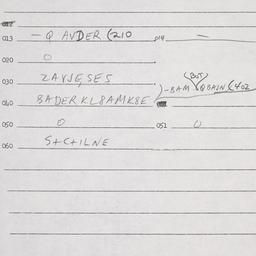 013 — Q AVDER (210 014 —
020 0
030 ZAVJE,SES
040 BADERKL8AMK8E } -BAM (BUT) QBAIN (402
050 0 051 0
060 S+C+ILNE